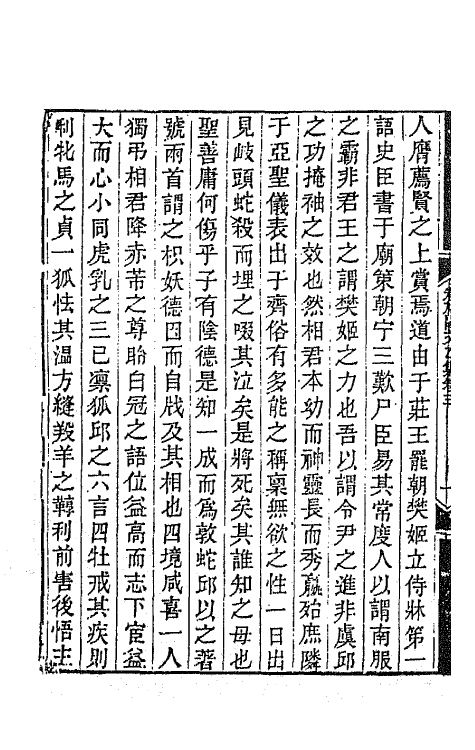 人膺薦賢之上賞焉道由于莊王罷朝樊姬立侍牀第一
語史臣書于廟策朝宁三歎尸臣易其常度人以謂南服
之霸非君王之謂樊姬之力也吾以謂令尹之進非虞邱
之功掩袖之效也然相君本幼而神靈長而秀羸殆庶隣
于亞聖儀表出于齊俗有多能之稱稟無欲之性一日出
見岐頭蛇殺而埋之啜其泣矣是將死矣其誰知之母也
聖善庸何傷乎子有陰德是知一成而爲敦蛇邱以之著
號兩首謂之枳妖德因而自戕及其相也四境咸喜一人
獨弔相君降赤芾之尊貽白冠之語位益高而志下宦益
大而心小同虎乳之三已稟狐邱之六言四牡戒其疾則
利牝馬之貞一狐怯其溫方縫羖羊之鞟利前害後悟主